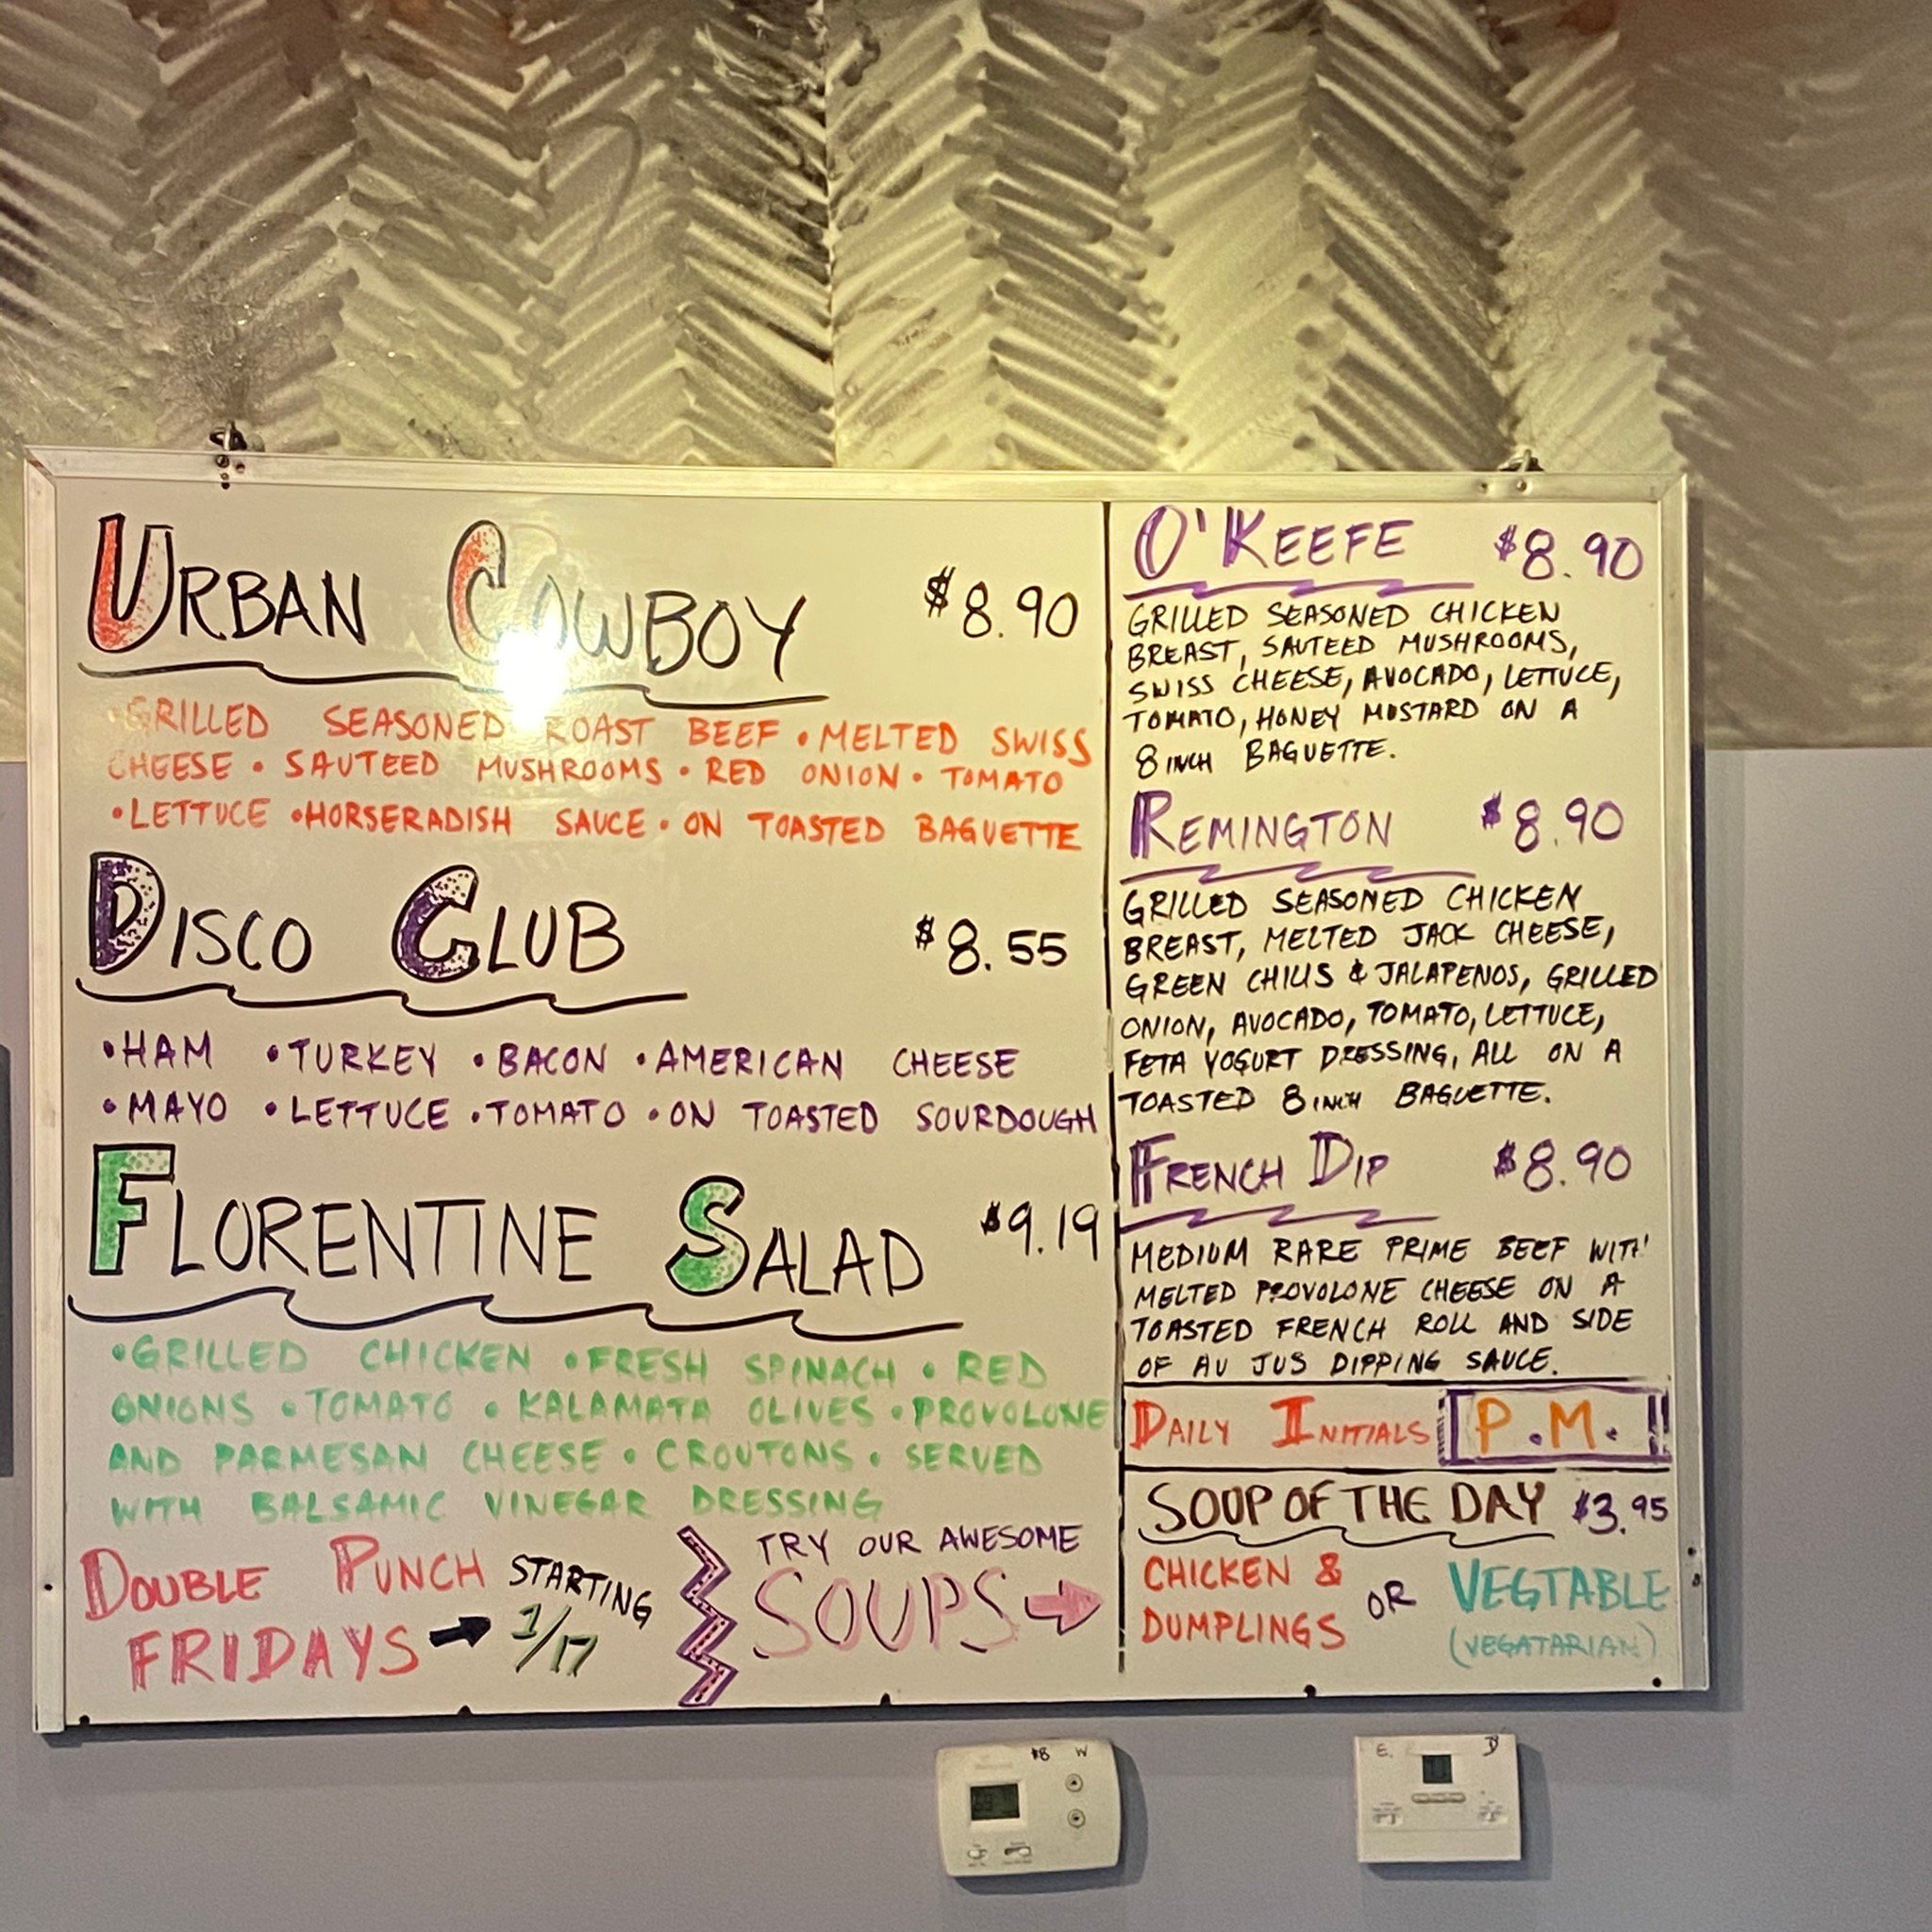 URBAN COWBOY $8.90
•GRILLED SEASONED ROAST BEEF • MELTED SWISS
CHEESE • SAUTEED MUSHROOMS • RED ONION • TOMATO
•LETTUCE •HORSERADISH SAUCE • ON TOASTED BAGUETTE
DISCO CLUB $8.55
•HAM •TURKEY •BACON •AMERICAN CHEESE
•MAYO •LETTUCE •TOMATO •ON TOASTED SOURDOUGH
FLORENTINE SALAD $9.19
•GRILLED CHICKEN •FRESH SPINACH • RED
ONIONS • TOMATO • KALAMATA OLIVES • PROVOLONE
AND PARMESAN CHEESE • CROUTONS • SERVED
WITH BALSAMIC VINEGAR DRESSING
DOUBLE PUNCH
FRIDAYS
STARTING
1/17
TRY OUR AWESOME
SOUPS
O'KEEFE $8.90
GRILLED SEASONED CHICKEN
BREAST, SAUTEED MUSHROOMS,
SWISS CHEESE, AVOCADO, LETTUCE,
TOMATO, HONEY MUSTARD ON A
8 INCH BAGUETTE.
REMINGTON $8.90
GRILLED SEASONED CHICKEN
BREAST, MELTED JACK CHEESE,
GREEN CHILIS & JALAPENOS, GRILLED
ONION, AVOCADO, TOMATO, LETTUCE,
FETA YOGURT DRESSING, ALL ON A
TOASTED 8 INCH BAGUETTE.
FRENCH DIP $8.90
MEDIUM RARE PRIME BEEF WITH
MELTED PROVOLONE CHEESE ON A
TOASTED FRENCH ROLL AND SIDE
OF AU JUS DIPPING SAUCE.
DAILY INITIALS P.M.
SOUP OF THE DAY $3.95
CHICKEN &
DUMPLINGS
OR
VEGTABLE
(VEGATARIAN)
W
E.